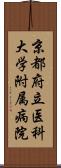 京都府立医科
大学附属病院